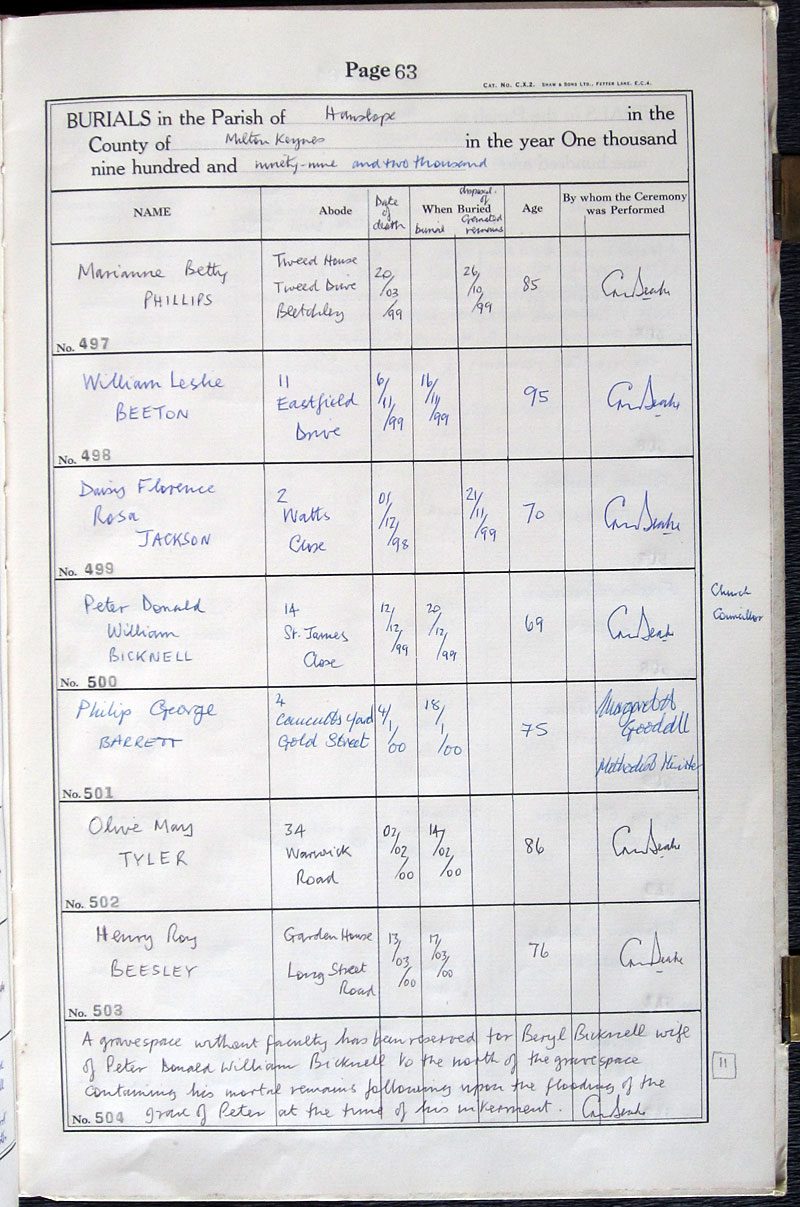 Page 63
CAT. No. C.X.2. SHAW & SONS LTD., FETTER LANE, E.C.4.
BURIALS in the Parish of Hanslope in the
County of Milton Keynes in the year One thousand
nine hundred and ninety-nine and two thousand
NAME Abode Date of death When Buried burial disposal of Cremated remains Age By whom the Ceremony was Performed
Marianne Betty
PHILLIPS
Tweed House
Tweed Drive
Bletchley
20/03/99
26/10/99
85
No. 497
William Leslie
BEETON
11
Eastfield
Drive
6/11/99
16/11/99
95
No. 498
Daisy Florence
Rosa
JACKSON
2
Watts
Close
01/12/98
21/11/99
70
No. 499
Peter Donald
William
BICKNELL
14
St. James
Close
12/12/99
20/12/99
69
Church
Councillor
No. 500
Philip George
BARRETT
4
Gold Street
4/1/00
18/1/00
75
Margaret A
Goodall
Methodist Minister
No. 501
Olive May
TYLER
34
Warwick
Road
02/02/00
14/02/00
86
No. 502
Henry Roy
BEESLEY
Garden House
Long Street
Road
13/03/00
17/03/00
76
No. 503
A gravespace without faculty has been reserved for Beryl Bicknell wife
of Peter Donald William Bicknell to the north of the gravespace
containing his mortal remains following upon the flooding of the
grave of Peter at the time of his interment.
No. 504
11